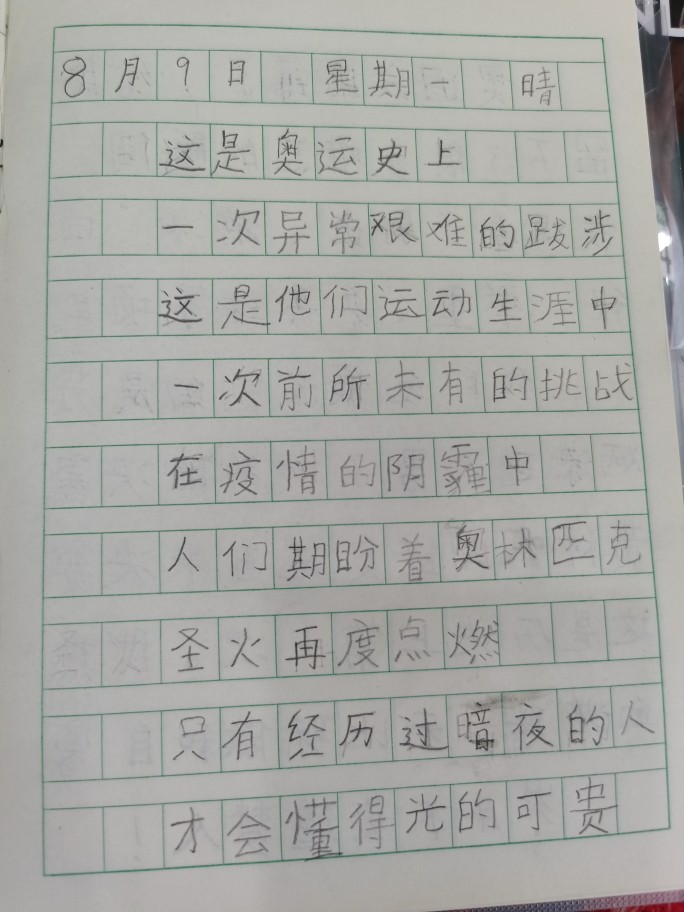 8月9日 星期一 晴
这是奥运史上
一次异常艰难的跋涉
这是他们运动生涯中
一次前所未有的挑战
在疫情的阴霾中
人们期盼着奥林匹克
圣火再度点燃
只有经历过暗夜的人
才会懂得光的可贵